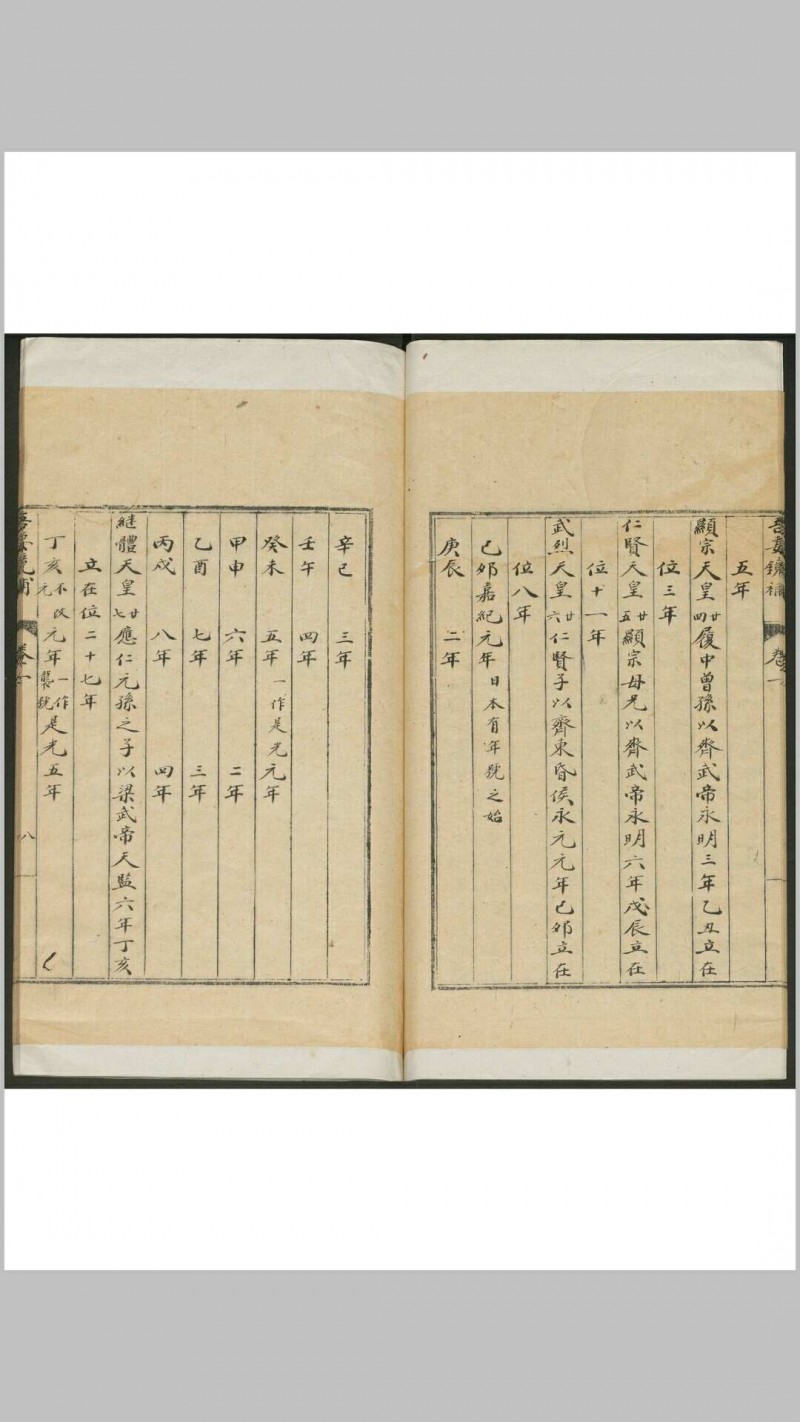 吾妻鏡補 卷一
五年
顯宗天皇廿四履中曾孫以齊武帝永明三年乙丑立在
位三年
仁賢天皇廿五顯宗母兄以齊武帝永明六年戊辰立在
位十一年
武烈天皇廿六仁賢子以齊東昏侯永元元年己卯立在
位八年
己卯嘉紀元年日本有年號之始
庚辰 二年
辛巳 三年
壬午 四年
癸未 五年 一作是光元年
甲申 六年 二年
乙酉 七年 三年
丙戌 八年 四年
継體天皇廿七應仁元孫之子以梁武帝天監六年丁亥
立在位二十七年
丁亥不改元元年一作襲號是光五年
吾妻鏡補 卷一 八